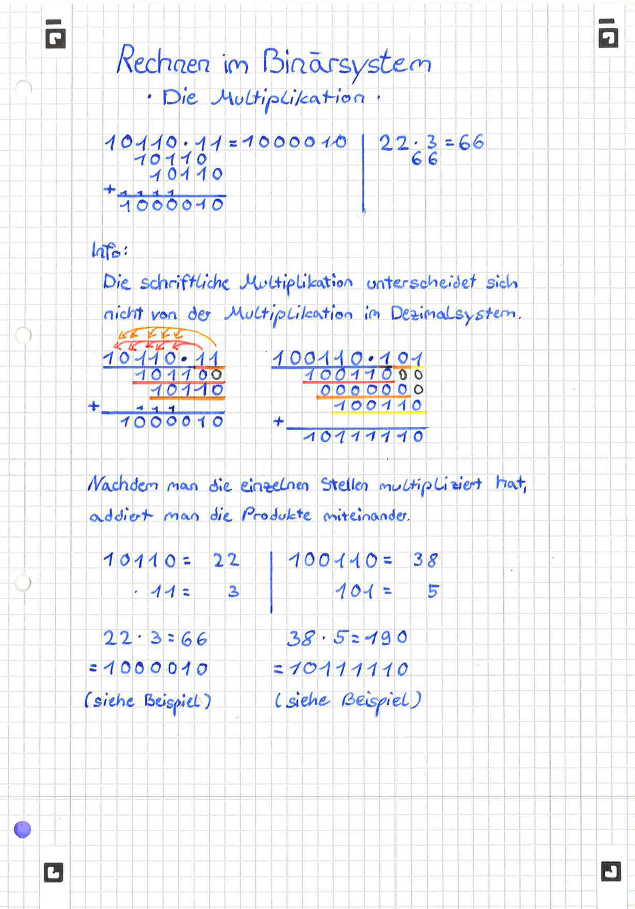 Rechnen im Binärsystem
· Die Multiplikation ·
10110·11=1000010 | 22·3=66
10110 66
10110
+ 1111
1000010
Info:
Die schriftliche Multiplikation unterscheidet sich
nicht von der Multiplikation im Dezimalsystem.
10110·11 100110·101
101100 10011000
10110 0000000
+ 111 100110
1000010 +
10111110
Nachdem man die einzelnen Stellen multipliziert hat,
addiert man die Produkte miteinander.
10110= 22 | 100110= 38
·11= 3 | 101= 5
22·3=66 38·5=190
=1000010 =10111110
(siehe Beispiel) (siehe Beispiel)